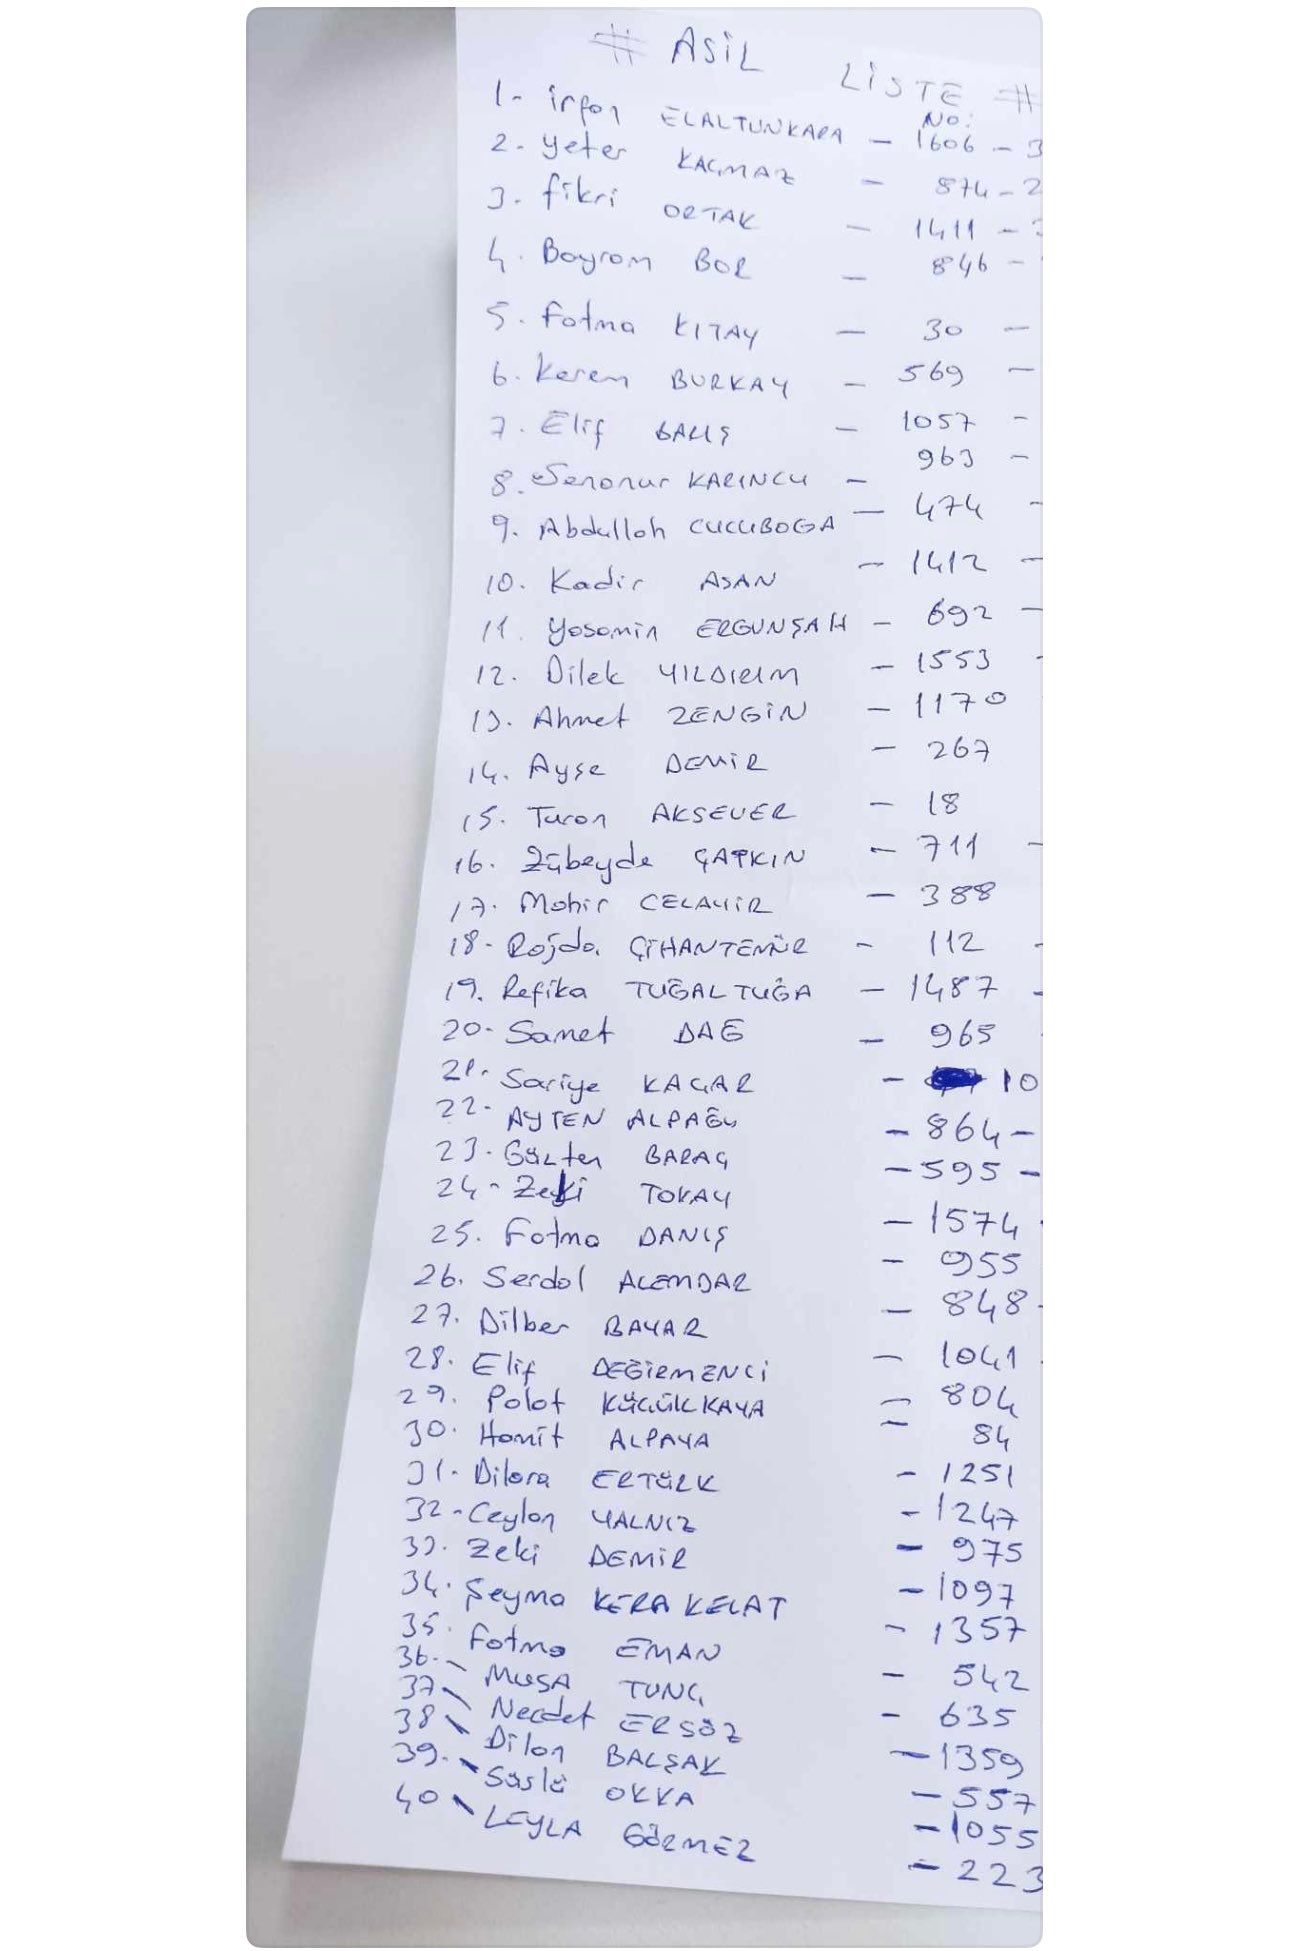 # ASİL LİSTE #
No:
1- irfan ELALTUNKARA - 1606 - 3
2. yeter KAÇMAZ - 874 - 2
3. fikri ORTAK - 1411 -
4. Bayram BOR - 846 -
5. fatma KITAY - 30 -
6. Kerem BURKAY - 569 -
7. Elif BALIŞ - 1057 -
8. Senanur KARINCU - 963 -
9. Abdullah CUCUBOGA - 474 -
10. Kadir ASAN - 1412 -
11. yasamin ERGUNŞAH - 692 -
12. Dilek YILDIRIM - 1553 -
13. Ahmet ZENGİN - 1170
14. Ayşe DEMİR - 267
15. Turan AKSEVER - 18
16. Zübeyde ÇATKIN - 711 -
17. Mahir CELAYİR - 388
18- Rojda. ÇİHANTEMÜR - 112 -
19. Refika TUĞALTUĞA - 1487 -
20- Samet DAĞ - 965
21. Sariye KAÇAR - 10
22- AYTEN ALPAĞU - 864 -
23. Gülten BARAÇ - 595 -
24- Zeki TOKAY - 1574 -
25. Fatma DANIŞ - 955
26. Serdal ALEMDAR - 848 -
27. Dilber BAYAR - 1041
28. Elif DEĞİRMENCİ - 804
29. Polat KÜÇÜKKAYA - 84
30. Hamit ALPAYA - 1251
31- Dilara ERTÜRK - 1247
32- Ceylan YALNIZ - 975
33. Zeki DEMİR - 1097
34. Şeyma KERAKELAT - 1357
35. Fatma EMAN - 542
36. - MUSA TUNÇ - 635
37 - Necdet ERSÖZ - 1359
38 - Dilan BALŞAK - 557
39. - Süslü OKKA - 1055
40 - LEYLA GÖRMEZ - 223